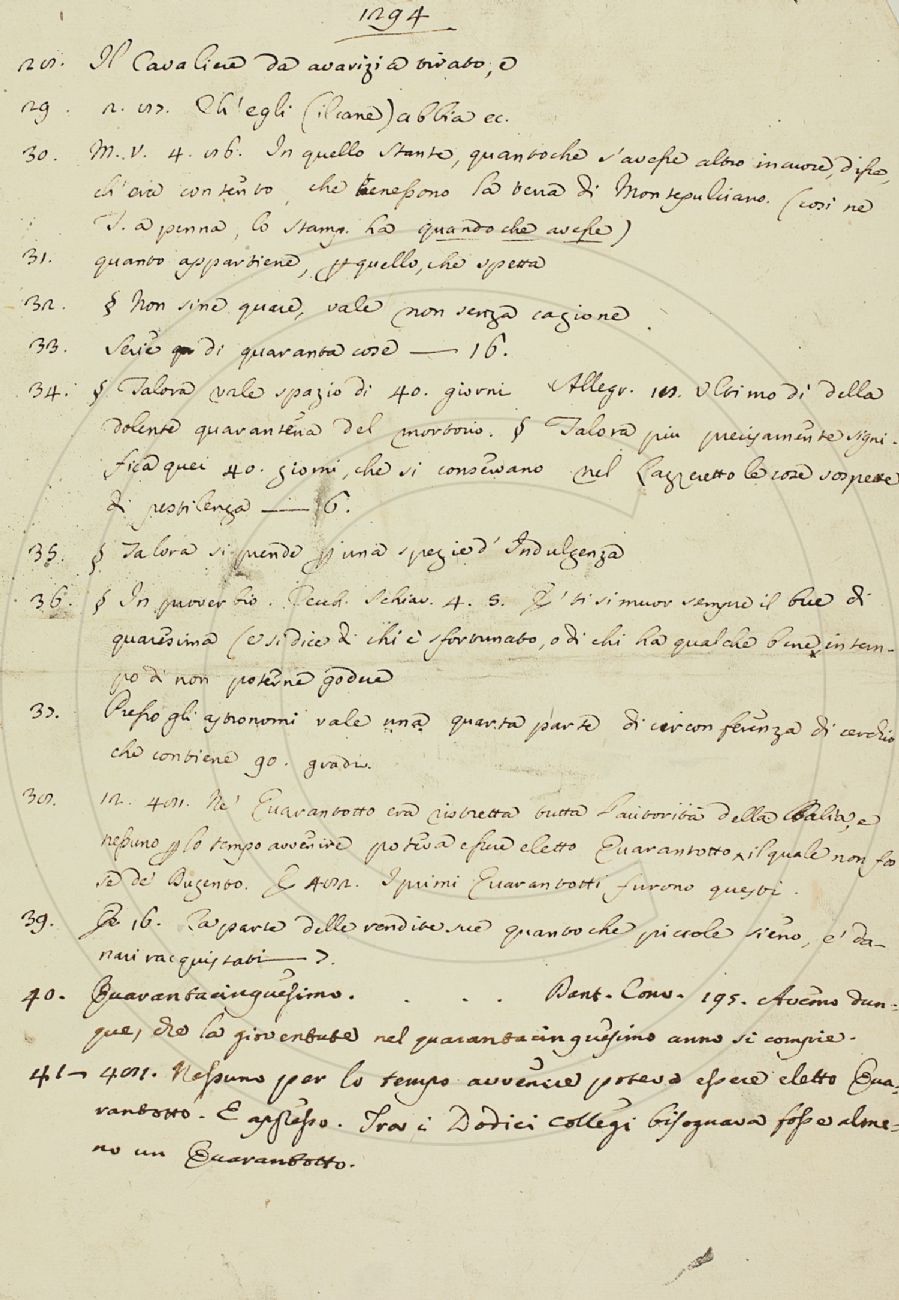 1294
28. Il Cavaliere da avarizia tirato, e
29. 2. 87. Ch'egli (il cane) abbia ec.
30. M. V. 4. 86. In quello stante, quantoche s'avesse altro in cuore, disse,
ch'era contento, che tenessono la terra di Montepulciano. (così ne
T. a penna, lo stamp. ha quandoche avesse)
31. quanto appartiene, p quello, che spetta
32. § Non sine quare, vale non senza cagione
33. Serie di quaranta cose — 16.
34. § Talora vale spazio di 40. giorni Allegr. 18. Ultimo dì della
dolente quarantena del mortorio. § Talora più precisamente signi-
fica quei 40. giorni, che si conservano nel Lazzeretto le cose sospette
di pestilenza — 6.
35. § Talora si prende p una spezie d'Indulgenza
36. § In proverbio. Cecch. Schiav. 4. 5. E' ti si muor sempre il bue di
quaresima (e si dice di chi è sfortunato, o di chi ha qualche bene, in tem-
po di non poterne godere
37. Presso gli astronomi vale una quarta parte di circonferenza di cerchio
che contiene 90. gradi.
38. 12. 481. Ne' Quarantotto era ristretta tutta l'autorità della Balia, e
nessuno p lo tempo avvenire poteva essere eletto Quarantotto, il quale non fos
se de' Dugento. E 482. I primi Quarantotti furono questi.
39. E 16. La parte delle rendite sue quantoche piccole sieno, e' da-
nari racquistati — 7.
40. Quarantacinquesimo. . . . Dant. Conv. 195. Avemo dun-
que, che la gioventute nel quarantacinquesimo anno si compie.
41 — 481. Nessuno per lo tempo avvenire poteva essere eletto Qua-
rantotto. E appresso. Tra i Dodici Collegi bisognava fosse alme-
no un Quarantotto.